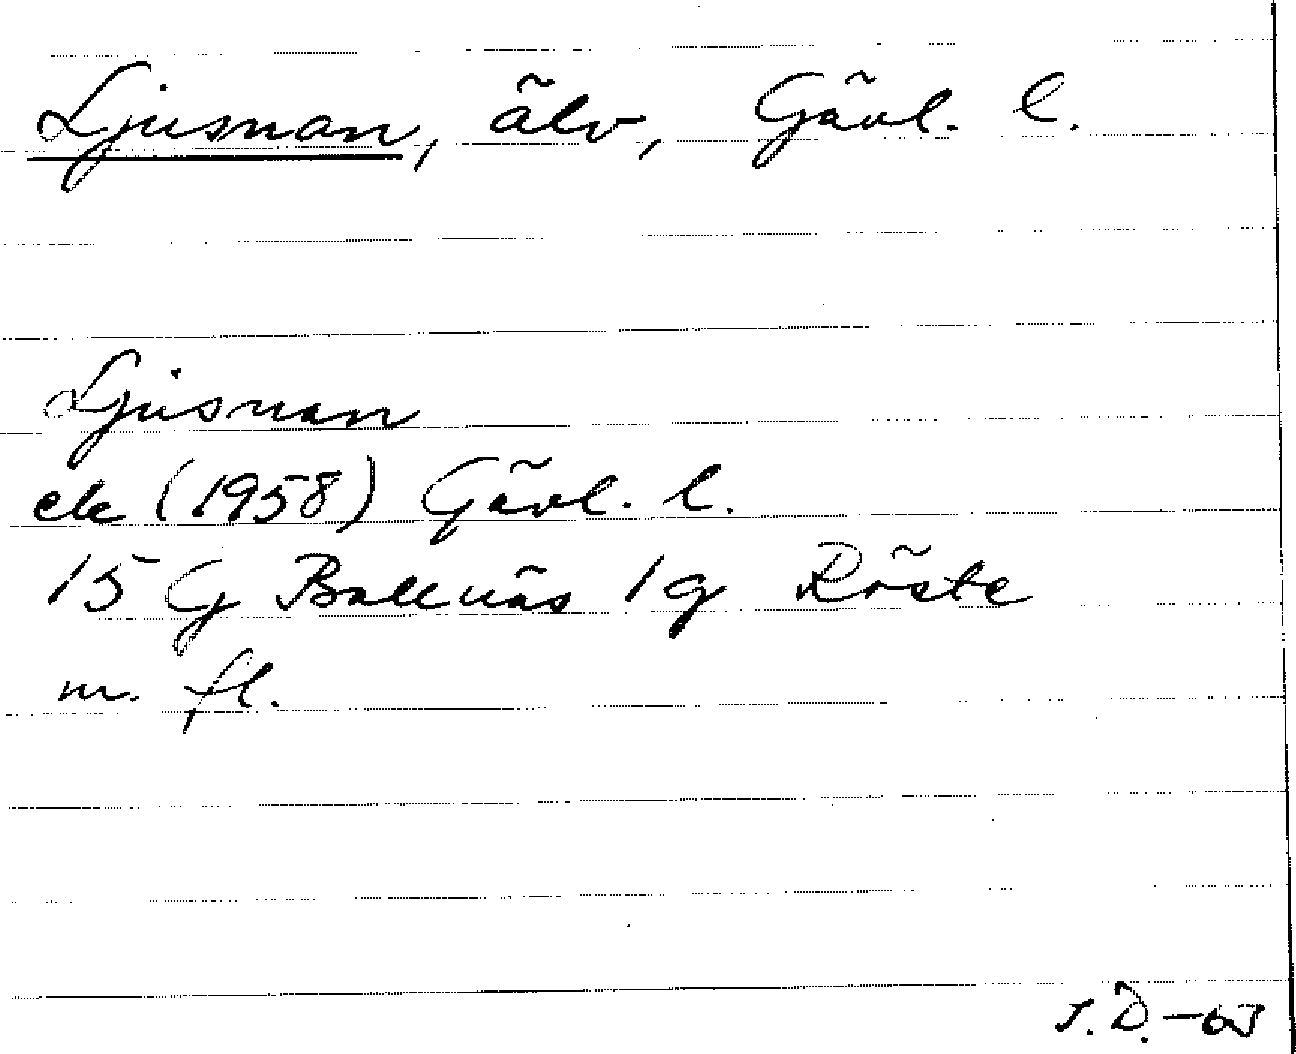 Ljusnan, älv, Gävl. l.
Ljusnan
ek (1958) Gävl. l.
15 G Bollnäs 1 g Röste
m. fl.
S.D.-63